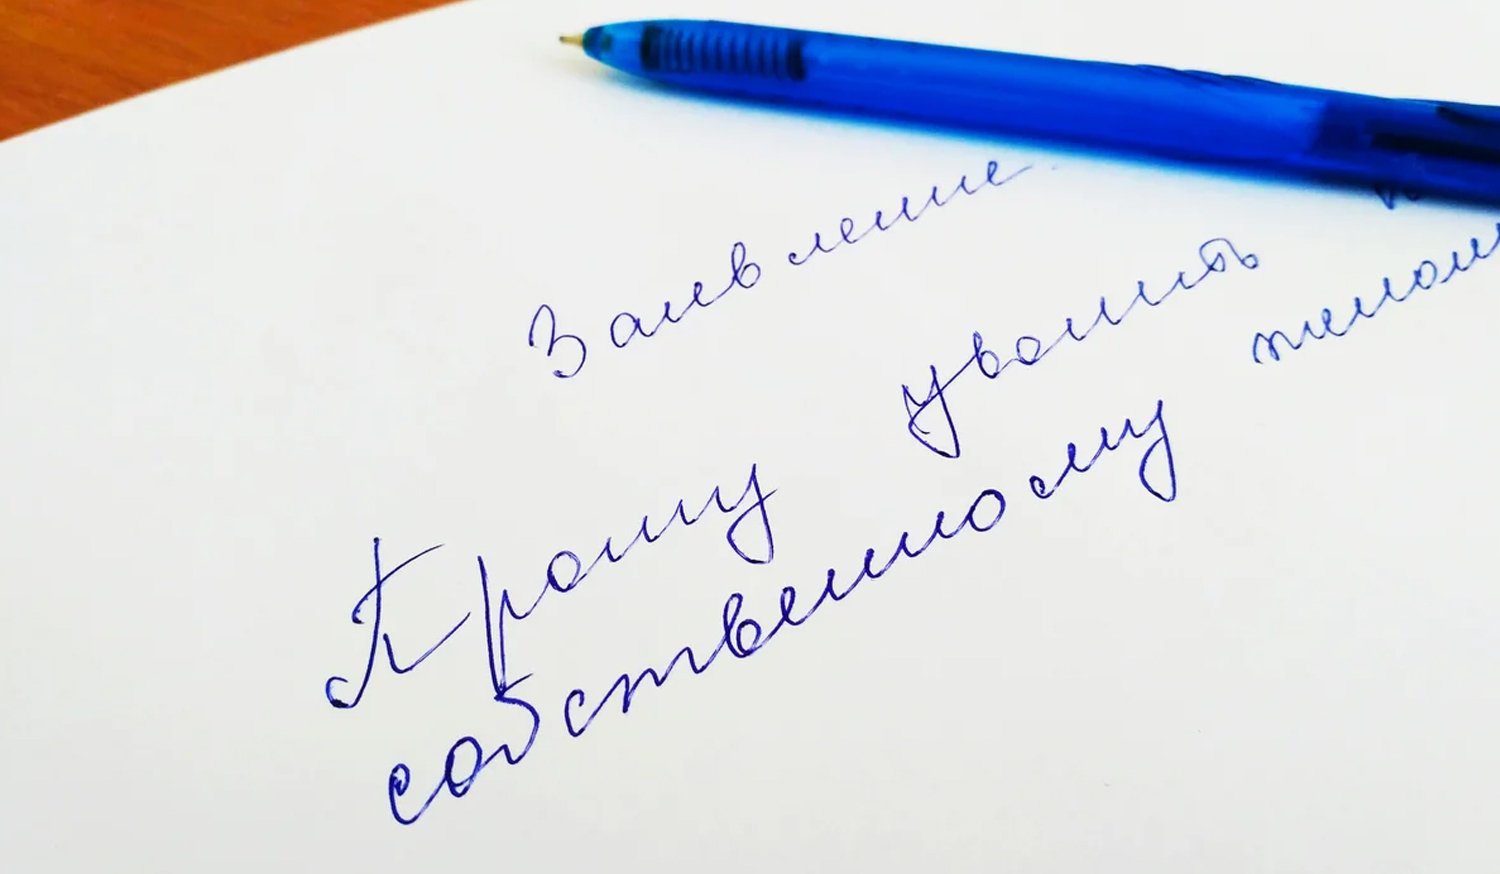 Заявление.
Прошу уволить
собственному желан